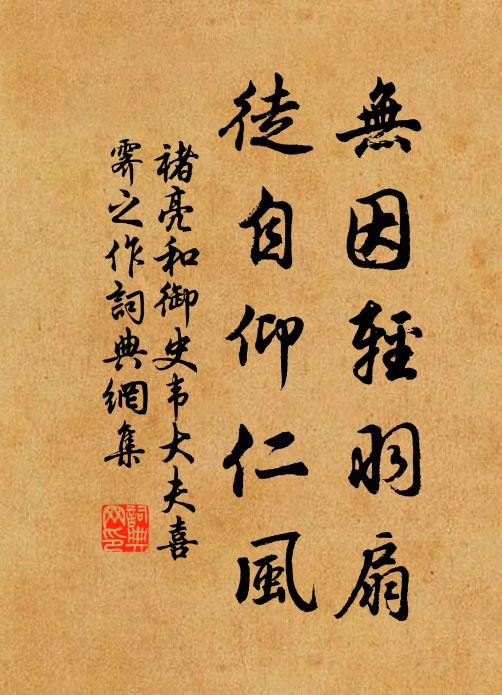 無因輕羽扇
徒自仰仁風
褚亮和御史韦大夫喜
霽之作詞典網集
詞典网印